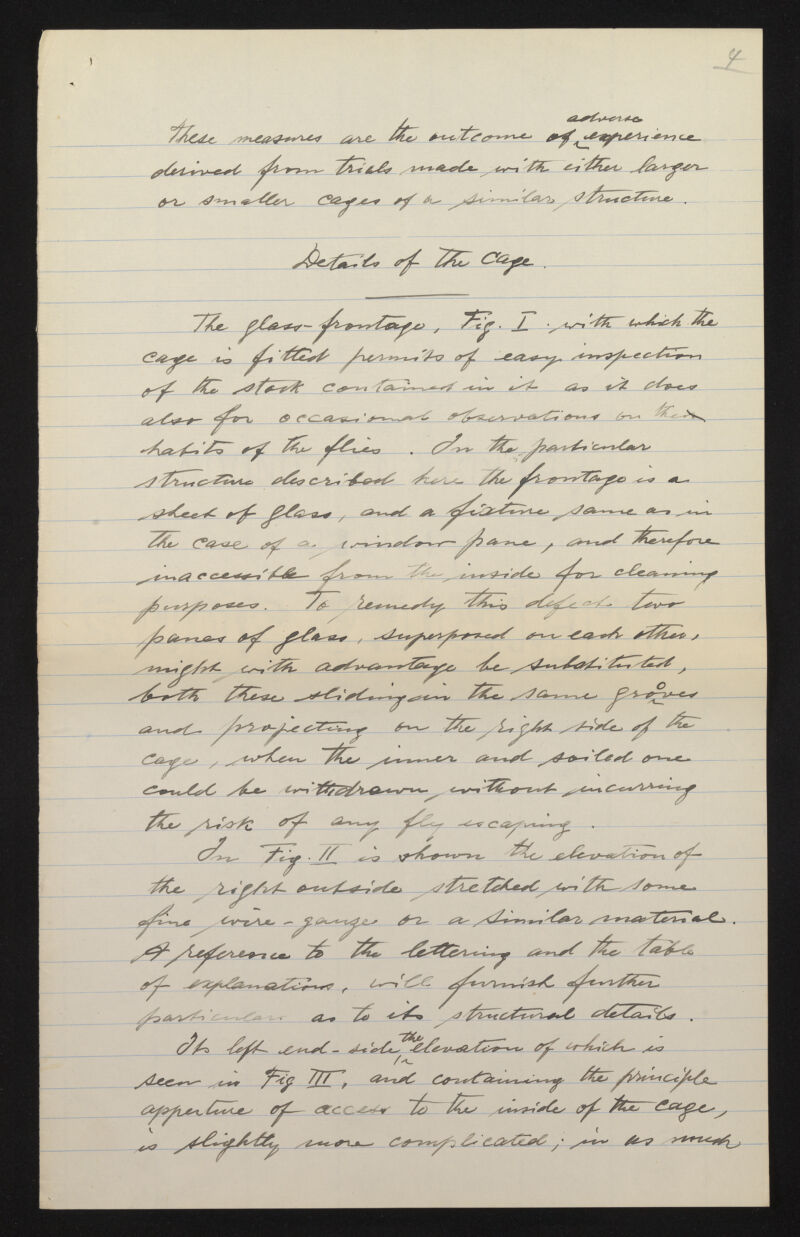 4
These measures are the outcome of adverse experience
derived from trials made with either larger
or smaller cages of a similar structure.
Details of the Cage.
The glass-frontage, Fig. I. with which the
cage is fitted permits of easy inspection
of the stock contained in it as it does
also for occasional observations on the
habits of the flies. In the particular
structure described here the frontage is a
sheet of glass, and a fixture same as in
the case of a window pane, and therefore
inaccessible from the inside for cleaning
purposes. To remedy this defect two
panes of glass, superposed on each other,
might with advantage be substituted,
both these sliding in the same grooves
and projecting on the right side of the
cage, when the inner and soiled one
could be withdrawn without incurring
the risk of any fly escaping.
In Fig. II is shown the elevation of
the right outside stretched with some
fine wire-gauze or a similar material.
A reference to the lettering and the table
of explanations, will furnish further
particulars as to its structural details.
Its left end-side, the elevation of which is
seen in Fig III, and containing the principle
apperture of access to the inside of the cage,
is slightly more complicated; in as much